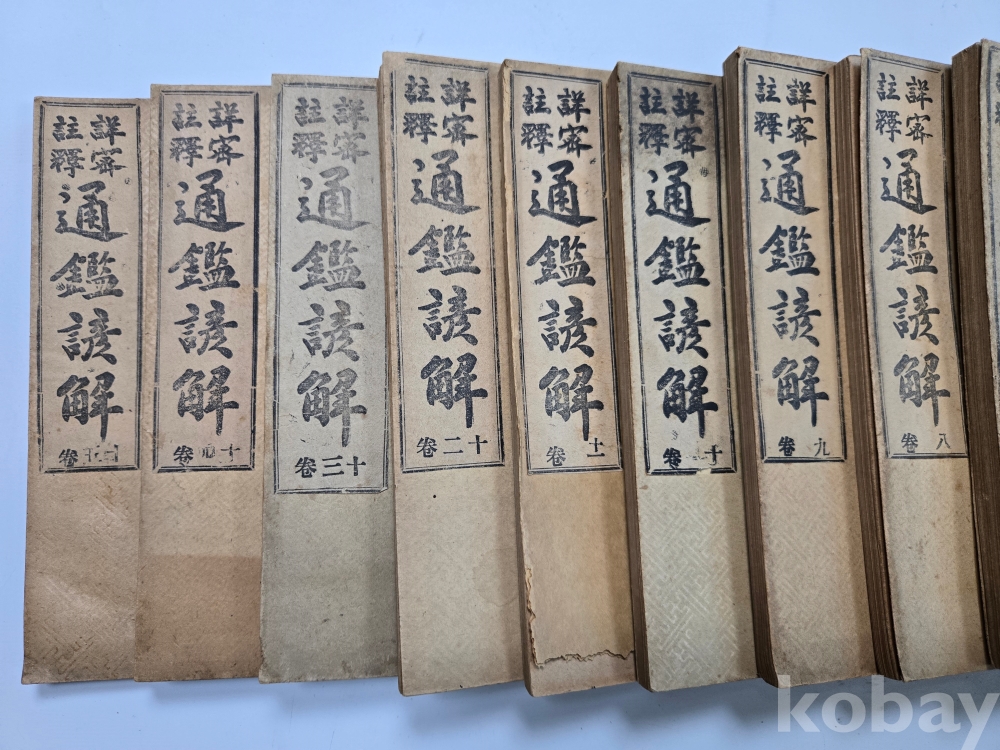 詳密
註釋
通鑑諺解
八卷
詳密
註釋
通鑑諺解
九卷
詳密
註釋
通鑑諺解
十卷
詳密
註釋
通鑑諺解
十一卷
詳密
註釋
通鑑諺解
十二卷
詳密
註釋
通鑑諺解
十三卷
詳密
註釋
通鑑諺解
十四卷
詳密
註釋
通鑑諺解
卷
kobay